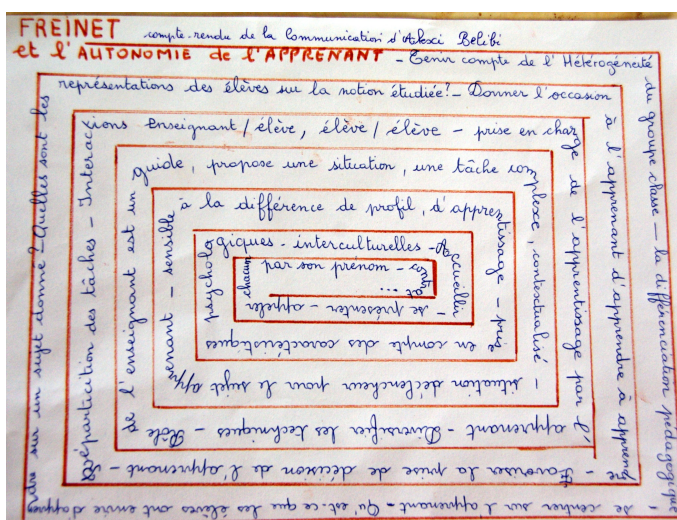 FREINET compte-rendu de la Communication d'Alexi Belibi
et l'AUTONOMIE de l'APPRENANT - Tenir compte de l'Hétérogénéité
du groupe classe — la différenciation pédagogique
- se centrer sur l'apprenant - Qu'est-ce que les élèves ont envie d'appren
dre sur un sujet donné? - Quelles sont les
représentations des élèves sur la notion étudiée? - Donner l'occasion
à l'apprenant d'apprendre à appren
dre - Favoriser la prise de décision de l'apprenant -
Réparticition des tâches - Interac
xions enseignant / élève, élève / élève - prise en char
ge de l'apprentissage par l'
apprenant - Diversifier les techniques - Rôle
de l'enseignant est un
guide, propose une situation, une tâche com
plexe, contextualisé
- situation déclencheur pour le sujet app
renant - sensible
à la différence de profil, d'appren
tissage - pri
se en compte des caractéristiques
psycholo
giques - interculturelles - A
ccueilli
- se présenter - appeler
chacun
par son prénom -
...